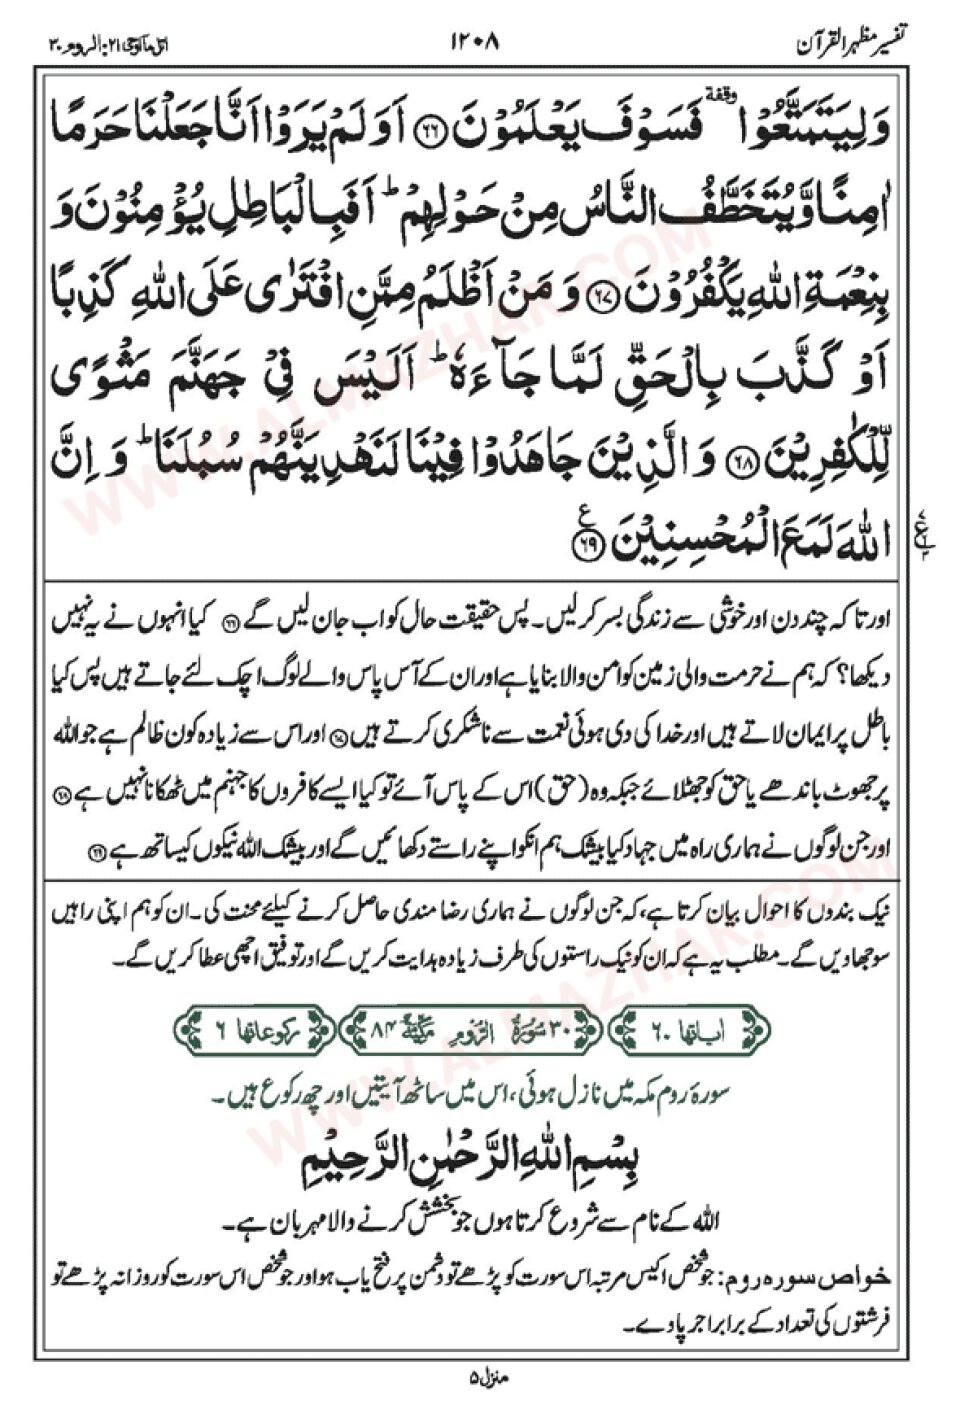 تفسیر مظہر القرآن
۱۲۰۸
اتل ما اوحی ۲۱: الروم ۳۰
وَلِيَتَمَتَّعُوْا وقفة فَسَوْفَ يَعْلَمُوْنَ ﴿۶۶﴾ اَوَلَمْ يَرَوْا اَنَّا جَعَلْنَا حَرَمًا
اٰمِنًا وَّيُتَخَطَّفُ النَّاسُ مِنْ حَوْلِهِمْ ؕ اَفَبِالْبَاطِلِ يُؤْمِنُوْنَ وَ
بِنِعْمَةِ اللّٰهِ يَكْفُرُوْنَ ﴿۶۷﴾ وَمَنْ اَظْلَمُ مِمَّنِ افْتَرٰى عَلَى اللّٰهِ كَذِبًا
اَوْ كَذَّبَ بِالْحَقِّ لَمَّا جَآءَهٗ ؕ اَلَيْسَ فِيْ جَهَنَّمَ مَثْوًى
لِّلْكٰفِرِيْنَ ﴿۶۸﴾ وَالَّذِيْنَ جَاهَدُوْا فِيْنَا لَنَهْدِيَنَّهُمْ سُبُلَنَا ؕ وَاِنَّ
اللّٰهَ لَمَعَ الْمُحْسِنِيْنَ ﴿۶۹﴾ ع
اور تا کہ چند دن اور خوشی سے زندگی بسر کر لیں۔ پس حقیقت حال کو اب جان لیں گے ﴿۶۶﴾ کیا انہوں نے یہ نہیں
دیکھا؟ کہ ہم نے حرمت والی زمین کو امن والا بنایا ہے اور ان کے آس پاس والے لوگ اچک لئے جاتے ہیں پس کیا
باطل پر ایمان لاتے ہیں اور خدا کی دی ہوئی نعمت سے ناشکری کرتے ہیں ﴿۶۷﴾ اور اس سے زیادہ کون ظالم ہے جو اللہ
پر جھوٹ باندھے یا حق کو جھٹلائے جبکہ وہ (حق) اس کے پاس آئے تو کیا ایسے کافروں کا جہنم میں ٹھکانا نہیں ہے ﴿۶۸﴾
اور جن لوگوں نے ہماری راہ میں جہاد کیا بیشک ہم انکو اپنے راستے دکھائیں گے اور بیشک اللہ نیکوں کیساتھ ہے ﴿۶۹﴾
نیک بندوں کا احوال بیان کرتا ہے، کہ جن لوگوں نے ہماری رضا مندی حاصل کرنے کیلئے محنت کی۔ ان کو ہم اپنی راہیں
سوجھاویں گے۔ مطلب یہ ہے کہ ان کو نیک راستوں کی طرف زیادہ ہدایت کریں گے اور توفیق اچھی عطا کریں گے۔
اٰیاتھا ۶۰
۳۰ سُوْرَةُ الرُّوْمِ مَكِّيَّةٌ ۸۴
رکوعاتھا ۶
سورۂ روم مکہ میں نازل ہوئی، اس میں ساٹھ آیتیں اور چھ رکوع ہیں۔
بِسْمِ اللّٰهِ الرَّحْمٰنِ الرَّحِيْمِ
اللہ کے نام سے شروع کرتا ہوں جو بخشش کرنے والا مہربان ہے۔
خواص سورہ روم: جو شخص اکیس مرتبہ اس سورت کو پڑھے تو دشمن پر فتح یاب ہو اور جو شخص اس سورت کو روزانہ پڑھے تو
فرشتوں کی تعداد کے برابر اجر پاوے۔
منزل ۵
WWW.ALMAZHAR.COM
WWW.ALMAZHAR.COM